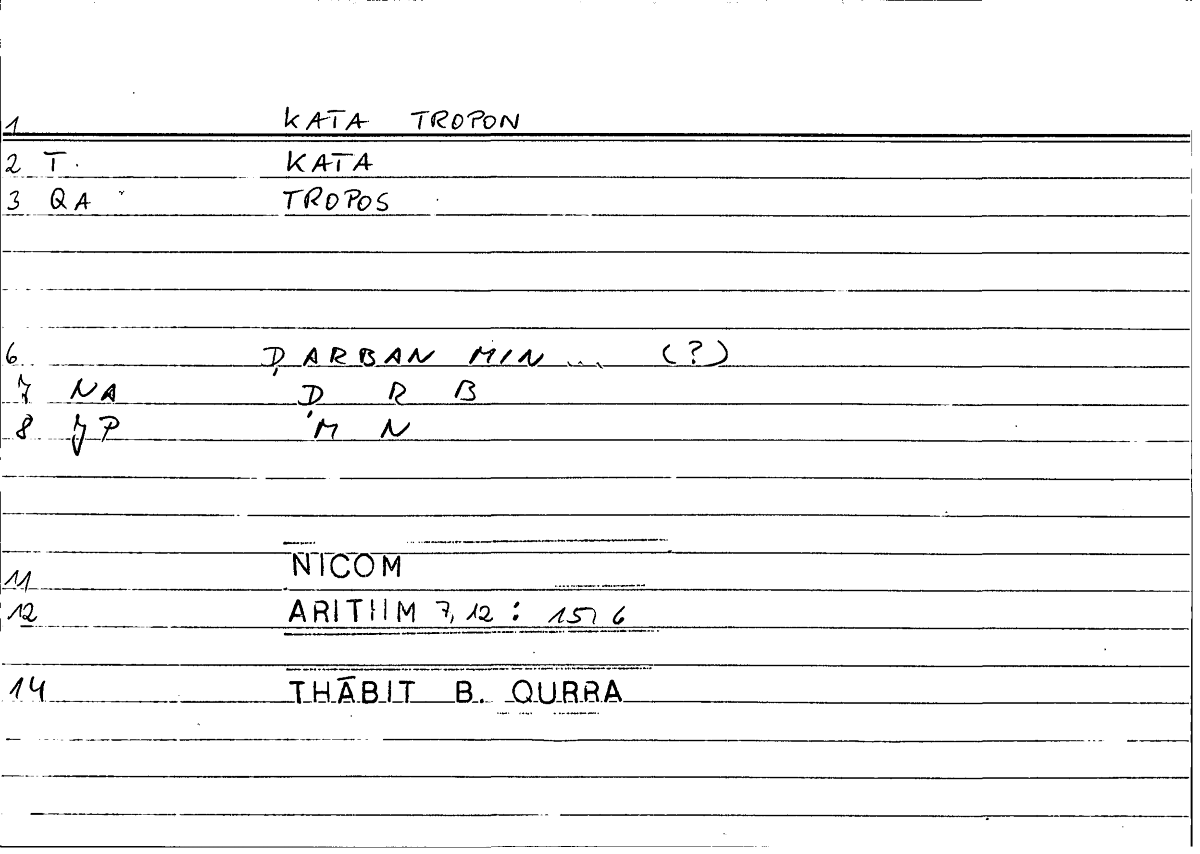 1 KATA TROPON
2 T. KATA
3 QA TROPOS
6 ḌARBAN MIN ... (?)
7 NA Ḍ R B
8 JP M N
11 NICOM
12 ARITHM 7, 12 : 15, 6
14 THĀBIT B. QURRA